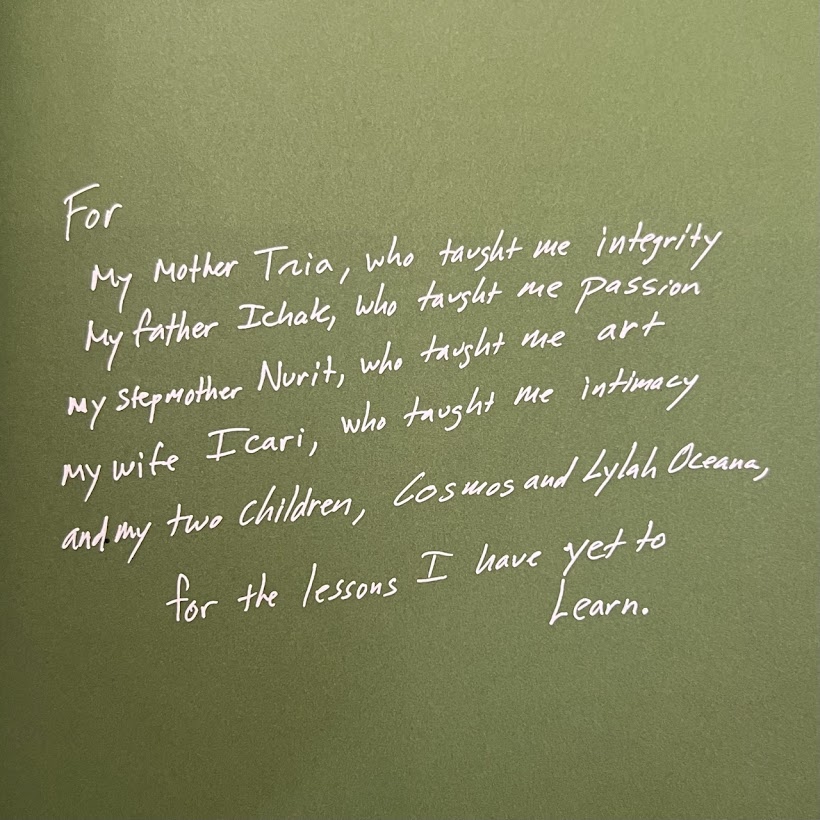 For
My Mother Tria, who taught me integrity
My father Ichak, who taught me passion
my stepmother Nurit, who taught me art
my wife Icari, who taught me intimacy
and my two children, Cosmos and Lylah Oceana,
for the lessons I have yet to
Learn.